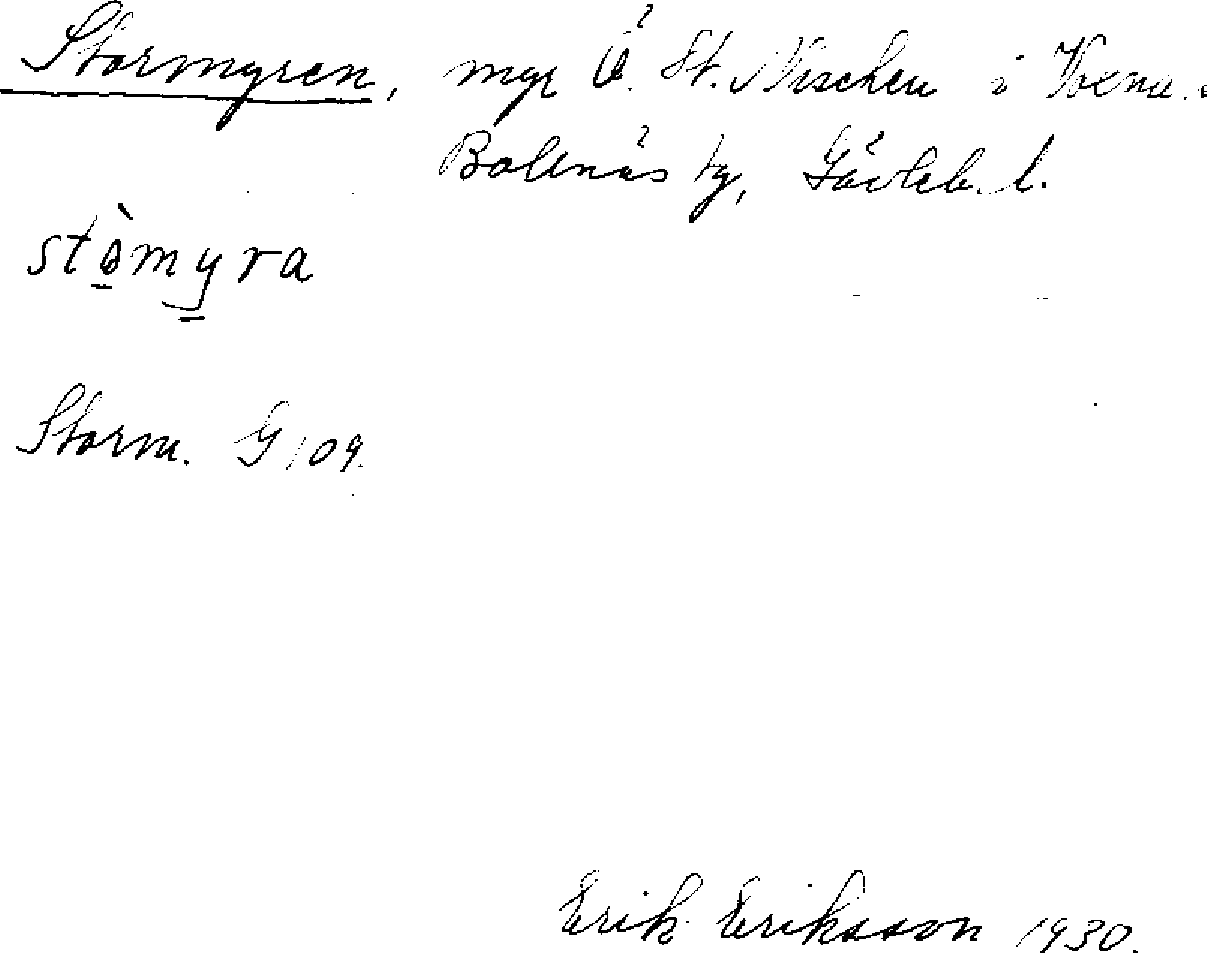 Stormyren, myr Ö. St. Mischen i Voxna s
Bollnäs tg, Gävleb. l.
stòmyra
Storm. G 109.
Erik Eriksson 1930.